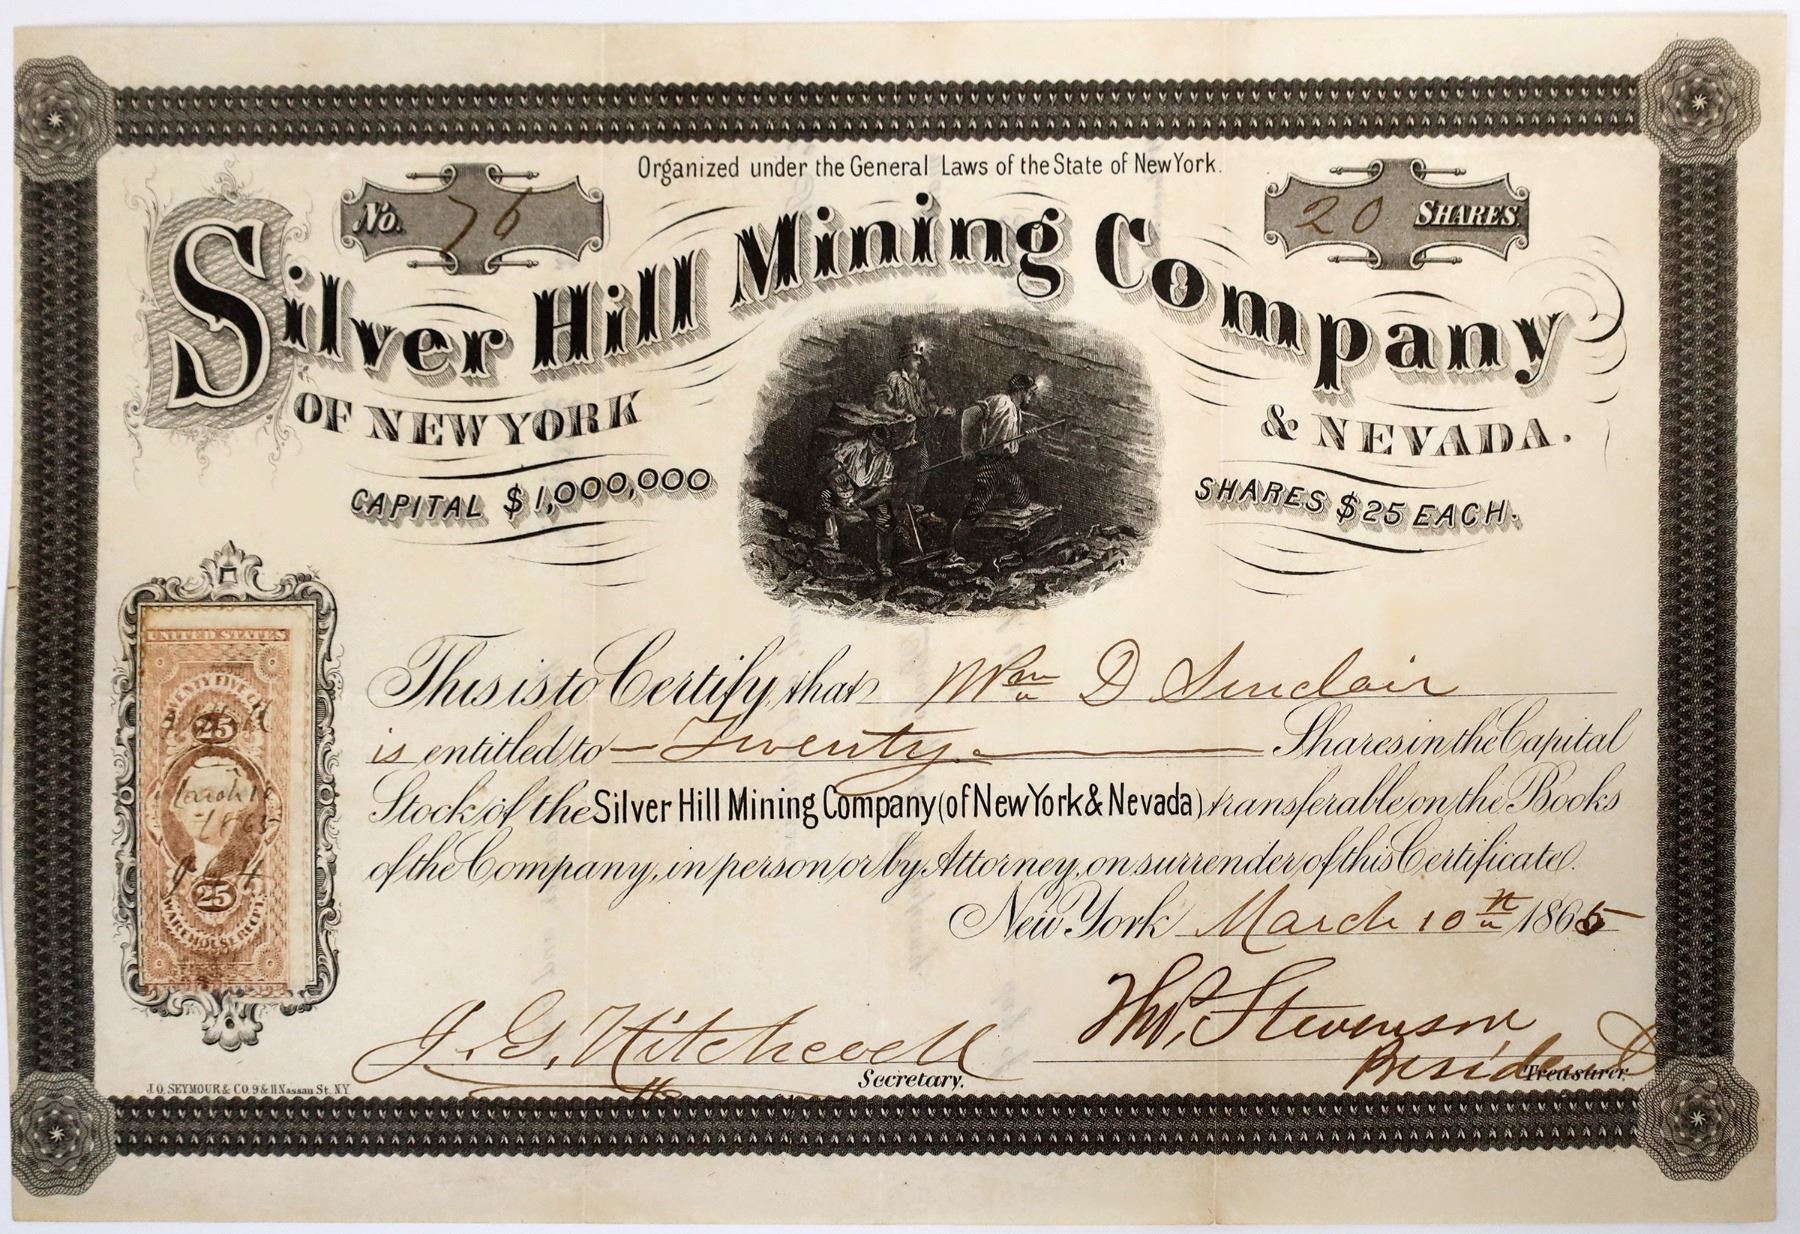 Organized under the General Laws of the State of New York.
No. 76
20 SHARES.
Silver Hill Mining Company
OF NEW YORK & NEVADA.
CAPITAL $1,000,000
SHARES $25 EACH.
This is to Certify that Wm D Sinclair
is entitled to Twenty Shares in the Capital
Stock of the Silver Hill Mining Company (of New York & Nevada) transferable on the Books
of the Company, in person or by Attorney, on surrender of this Certificate.
New York March 10th 1865
UNITED STATES
TWENTY FIVE
25
March 10
1865
25
WAREHOUSE RECEIPT
J. G. Secretary.
Thos. Stevenson
President Treasurer.
J.O. SEYMOUR & CO. 9 & 11 Nassau St. NY